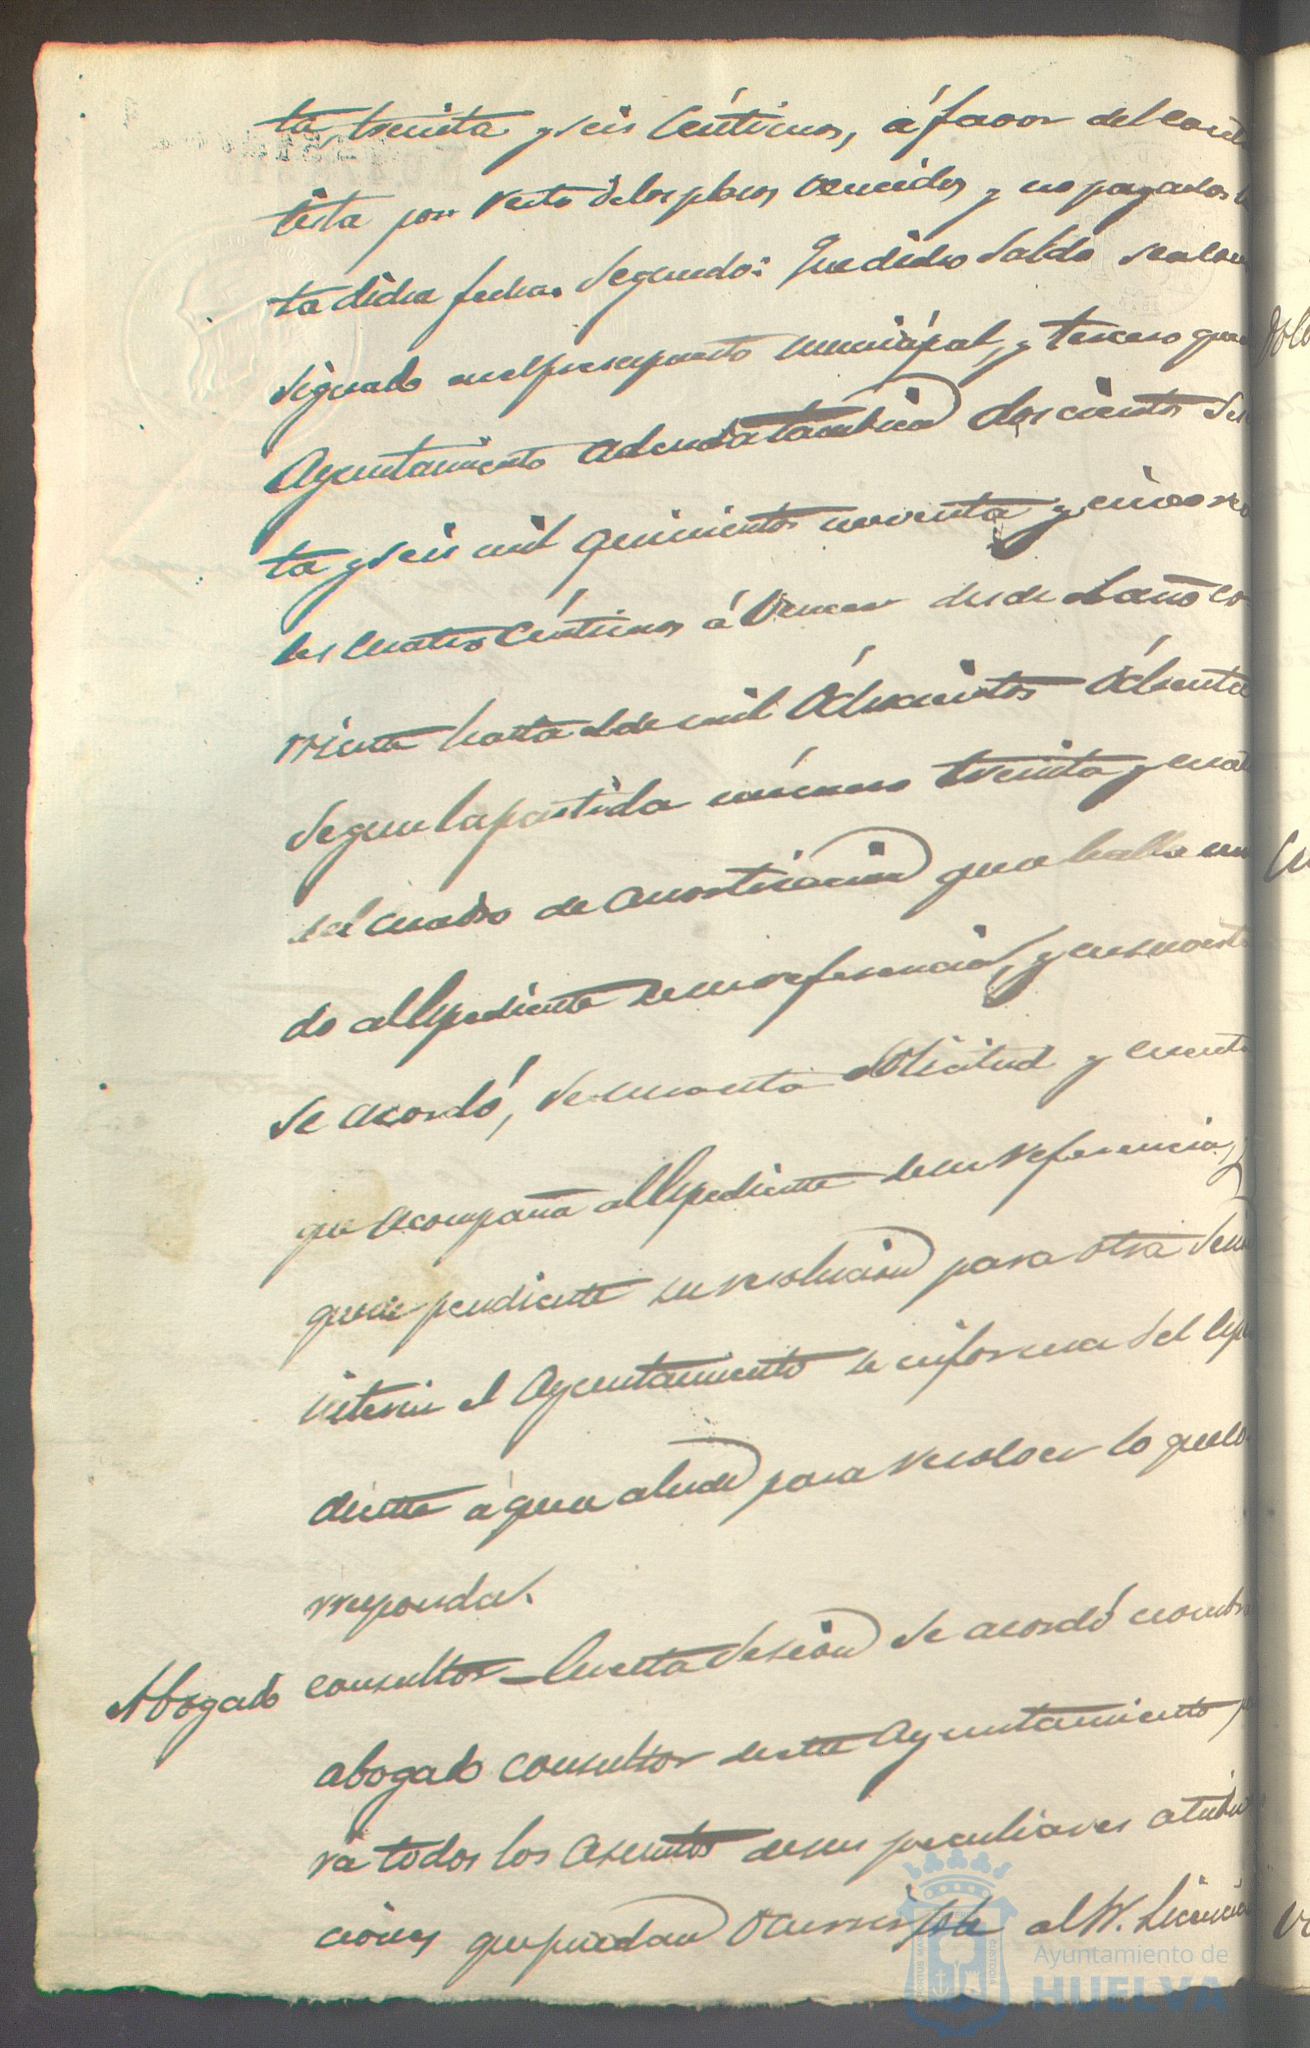 ta, treinta y seis Céntimos, á favor del contra
tista por resto de los plazos vencidos y no pagados
ta dicha fecha. Segundo: Que dicho Saldo sea con
signado en el presupuesto municipal, y tercero que
Ayuntamiento adeuda tambien doscientos
ta y seis mil quinientos noventa y cinco rea
les cuatro Céntimos á Vencer desde el año co
rriente hasta el de mil Ochocientos Ochenta
segun la partida número treinta y cuat
del cuadro de amortizacion que se halla uni
do al Espediente de su referencia, y en su vista
se acordó, se una esta solicitud y cuenta
que acompaña al Espediente de su referencia, y
quede pendiente su resolucion para otra Sesi
interin el Ayuntamiento se informa del Espe
diente á que alude para resolver lo que co
rresponda.
Abogado consultor - En esta Sesion se acordó nombr
abogado consultor de este Ayuntamiento pa
ra todos los Asuntos de sus peculiares atribu
ciones que puedan Ocurrirle al Sr. Licencia
Ayuntamiento de
HUELVA